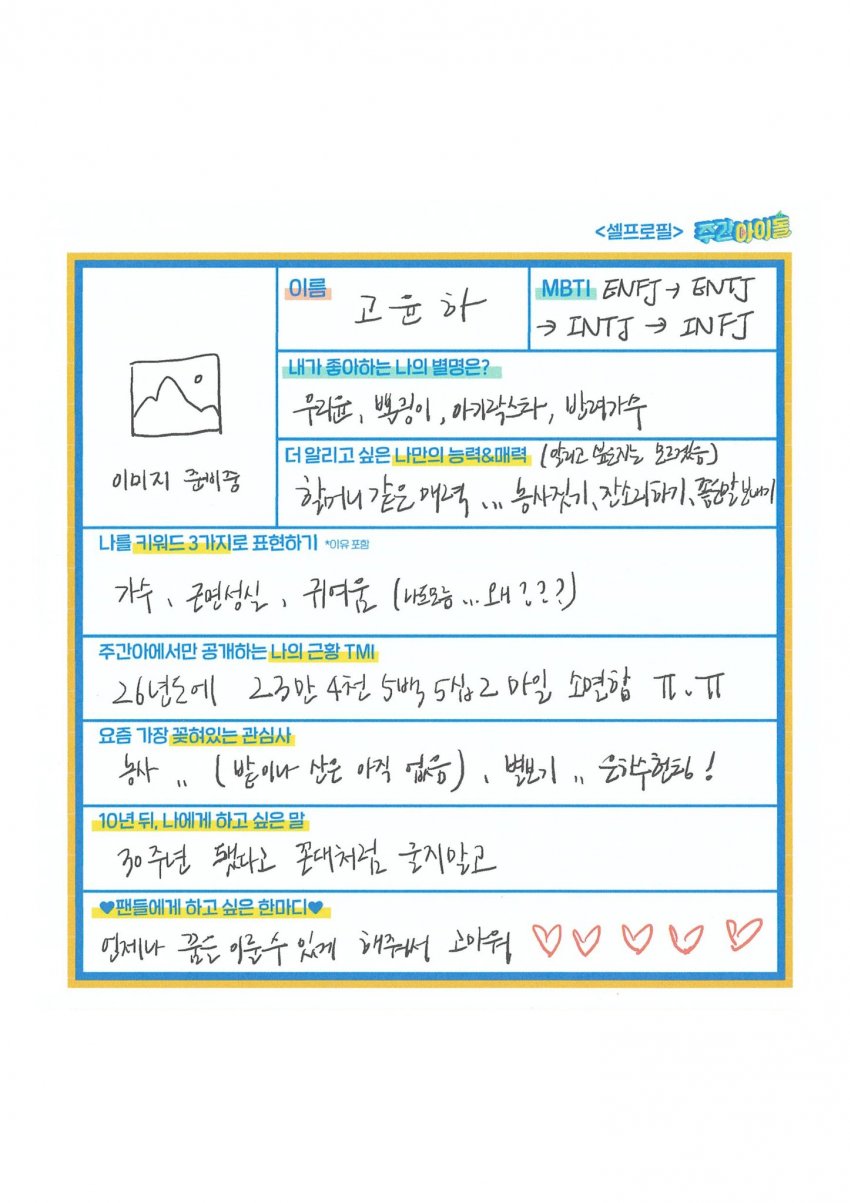 <셀프로필> 주간아이돌
이름
고윤하
MBTI ENFJ → ENTJ
→ INTJ → INFJ
이미지 준비중
내가 좋아하는 나의 별명은?
우리윤, 뽁귕이, 아기락스타, 반려가수
더 알리고 싶은 나만의 능력&매력 (알리고 싶은지는 모르겠음)
할머니 같은 매력 ... 농사짓기, 잔소리하기, 좋은말 보내기
나를 키워드 3가지로 표현하기 *이유 포함
가수、근면성실、귀여움 (나도모름 ... 왜???)
주간아에서만 공개하는 나의 근황 TMI
26년도에 23만 4천 5백 5십2 마일 소멸함 ㅠ.ㅠ
요즘 가장 꽂혀있는 관심사
농사 .. (밭이나 산은 아직 없음)、별보기 .. 은하수헌팅!
10년 뒤, 나에게 하고 싶은 말
30주년 됐다고 꼰대처럼 굴지말고
♥팬들에게 하고 싶은 한마디♥
언제나 꿈을 이룰수 있게 해줘서 고마워 ♡♡♡♡♡